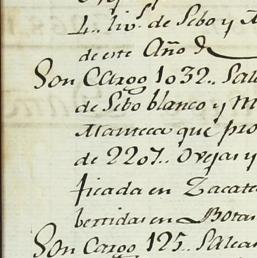 4.. liv.s de Sebo y
de este Año de
Son Cargo 1032..
de Sebo blanco y
Manteca que pro
de 2207.. Ovejas y
ficada en Zacate
bertidas en Botas
Son Cargo 125..